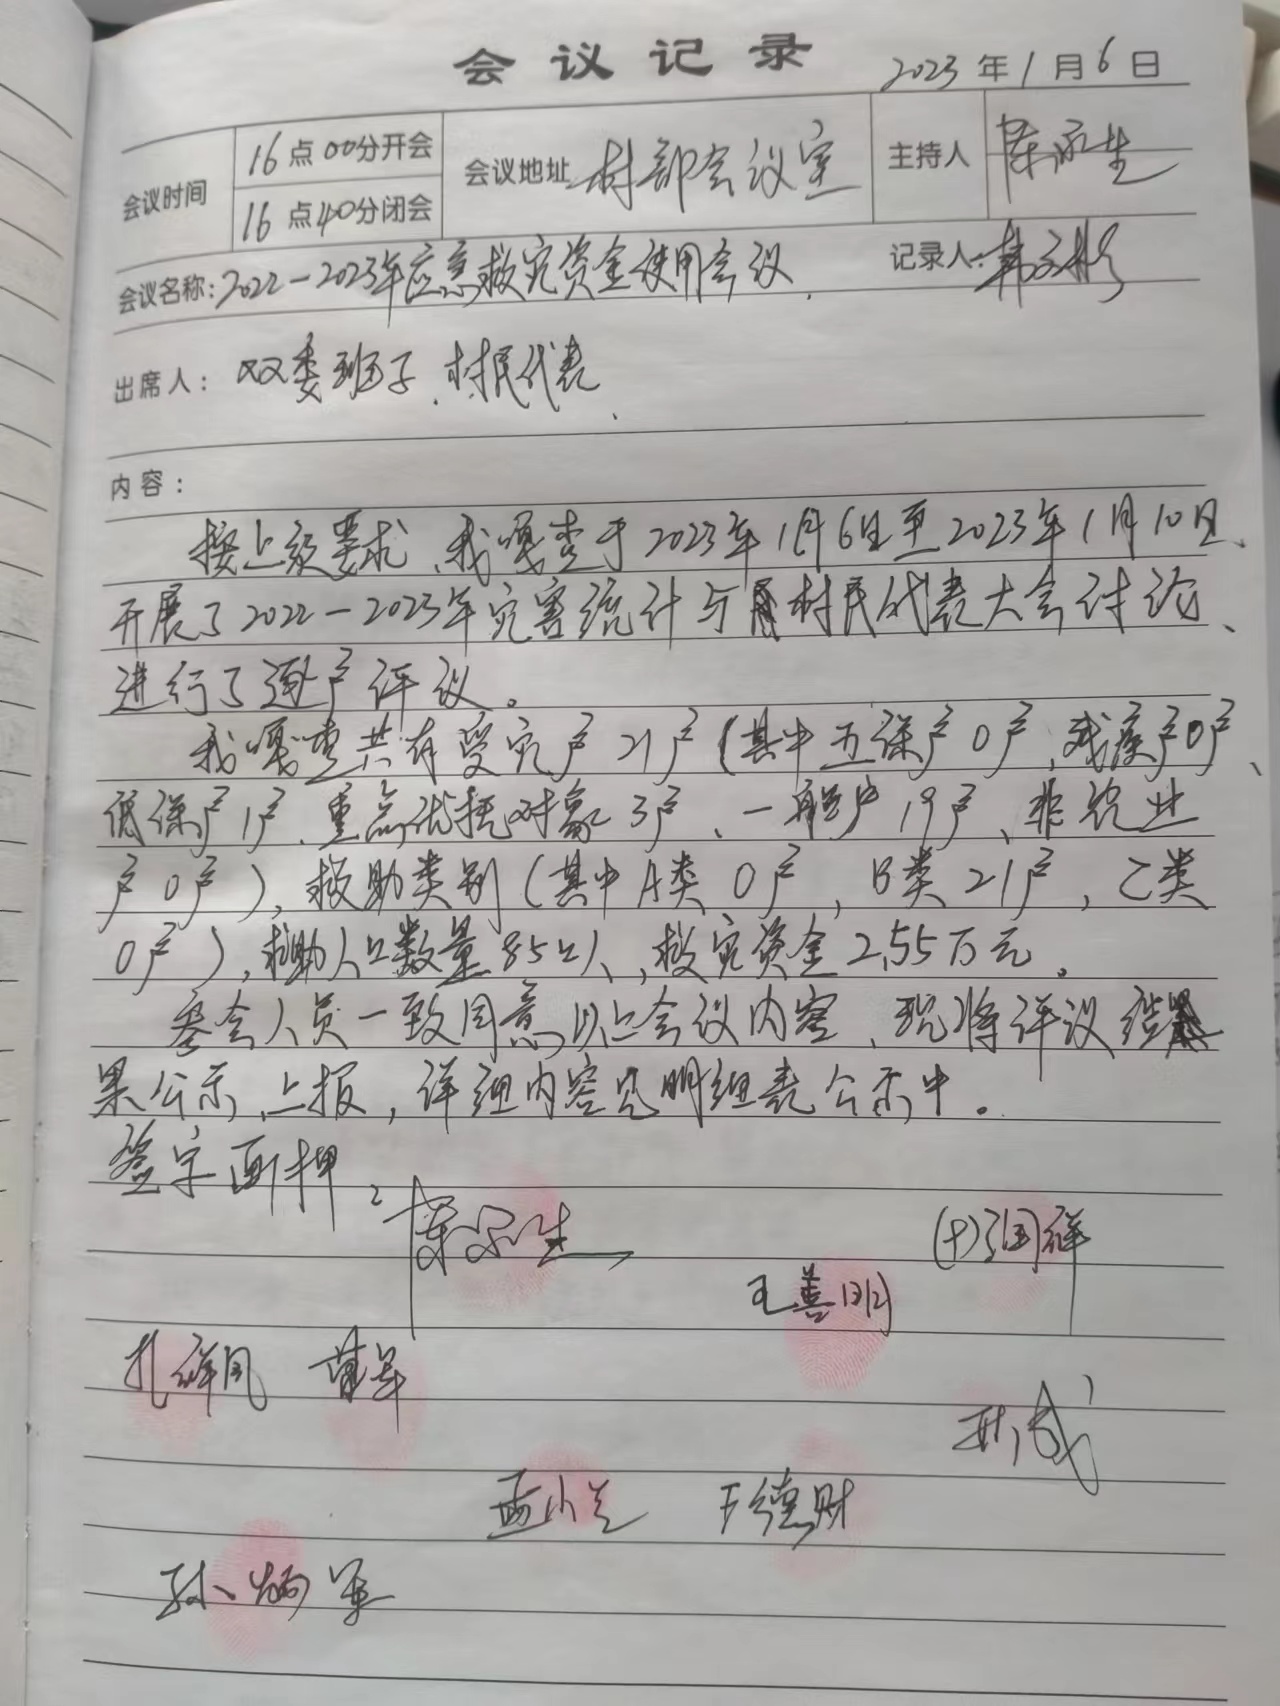 会议记录
2023年1月6日
会议时间 16点00分开会 会议地址 村部会议室 主持人 陈永生
16点40分闭会
会议名称：2022－2023年应急救灾资金使用会议. 记录人：韩
出席人：双委班子、村民代表.
内容：
按上级要求、我嘎查于2023年1月6日至2023年1月10日、
开展了2022－2023年灾害统计与村民代表大会讨论、
进行了逐户评议。
我嘎查共有受灾户21户（其中五保户0户、残疾户0户、
低保户1户、重点优抚对象3户、一般户19户、非农业
户0户），救助类别（其中A类0户，B类21户，C类
0户），救助人口数量85口人，救灾资金2.55万元。
参会人员一致同意以上会议内容、现将评议结
果公示、上报，详细内容见明细表公示中。
签字画押：
陈永生 王善明 (十)张国祥
孔祥凤 黄军
孟小兰 于德财
孙炳军